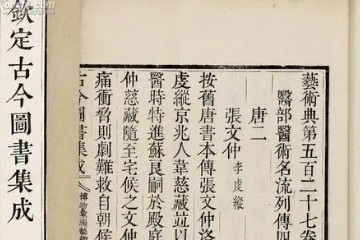 欽定古今圖書集成
藝術典第五百二十七卷
醫部醫術名流列傳四
唐二
張文仲 李虔縱
按舊唐書本傳張文仲洛
虔縱京兆人韋慈藏並以
醫時特進蘇良嗣於殿庭
仲慈藏隨至宅候之文仲
痛衝脅則劇難救自朝候
古今圖書集成